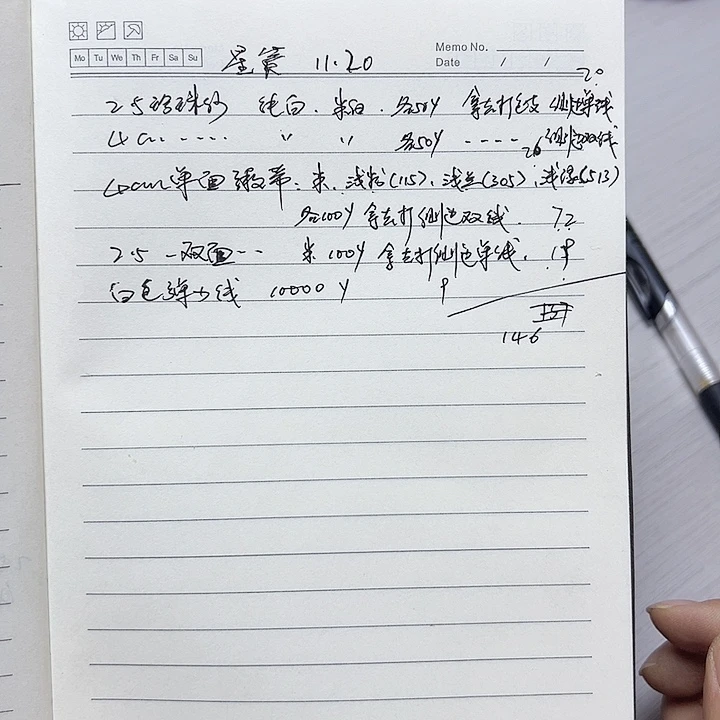 Memo No.
Mo Tu We Th Fr Sa Su
Date / /
星赛 11.20
20
2.5珍珠纱 纯白. 米白. 各50Y 拿去打包边 侧边单线
4cm ---- " " 各50Y ---- 侧边双线
26
4cm单面缎带. 米. 浅粉(115). 浅兰(305). 浅绿(513)
各100Y 拿去打侧边双线. 72
2.5 一双面-- 米 100Y 拿去打侧边单线. 19
白色弹力线 10000Y 9
146